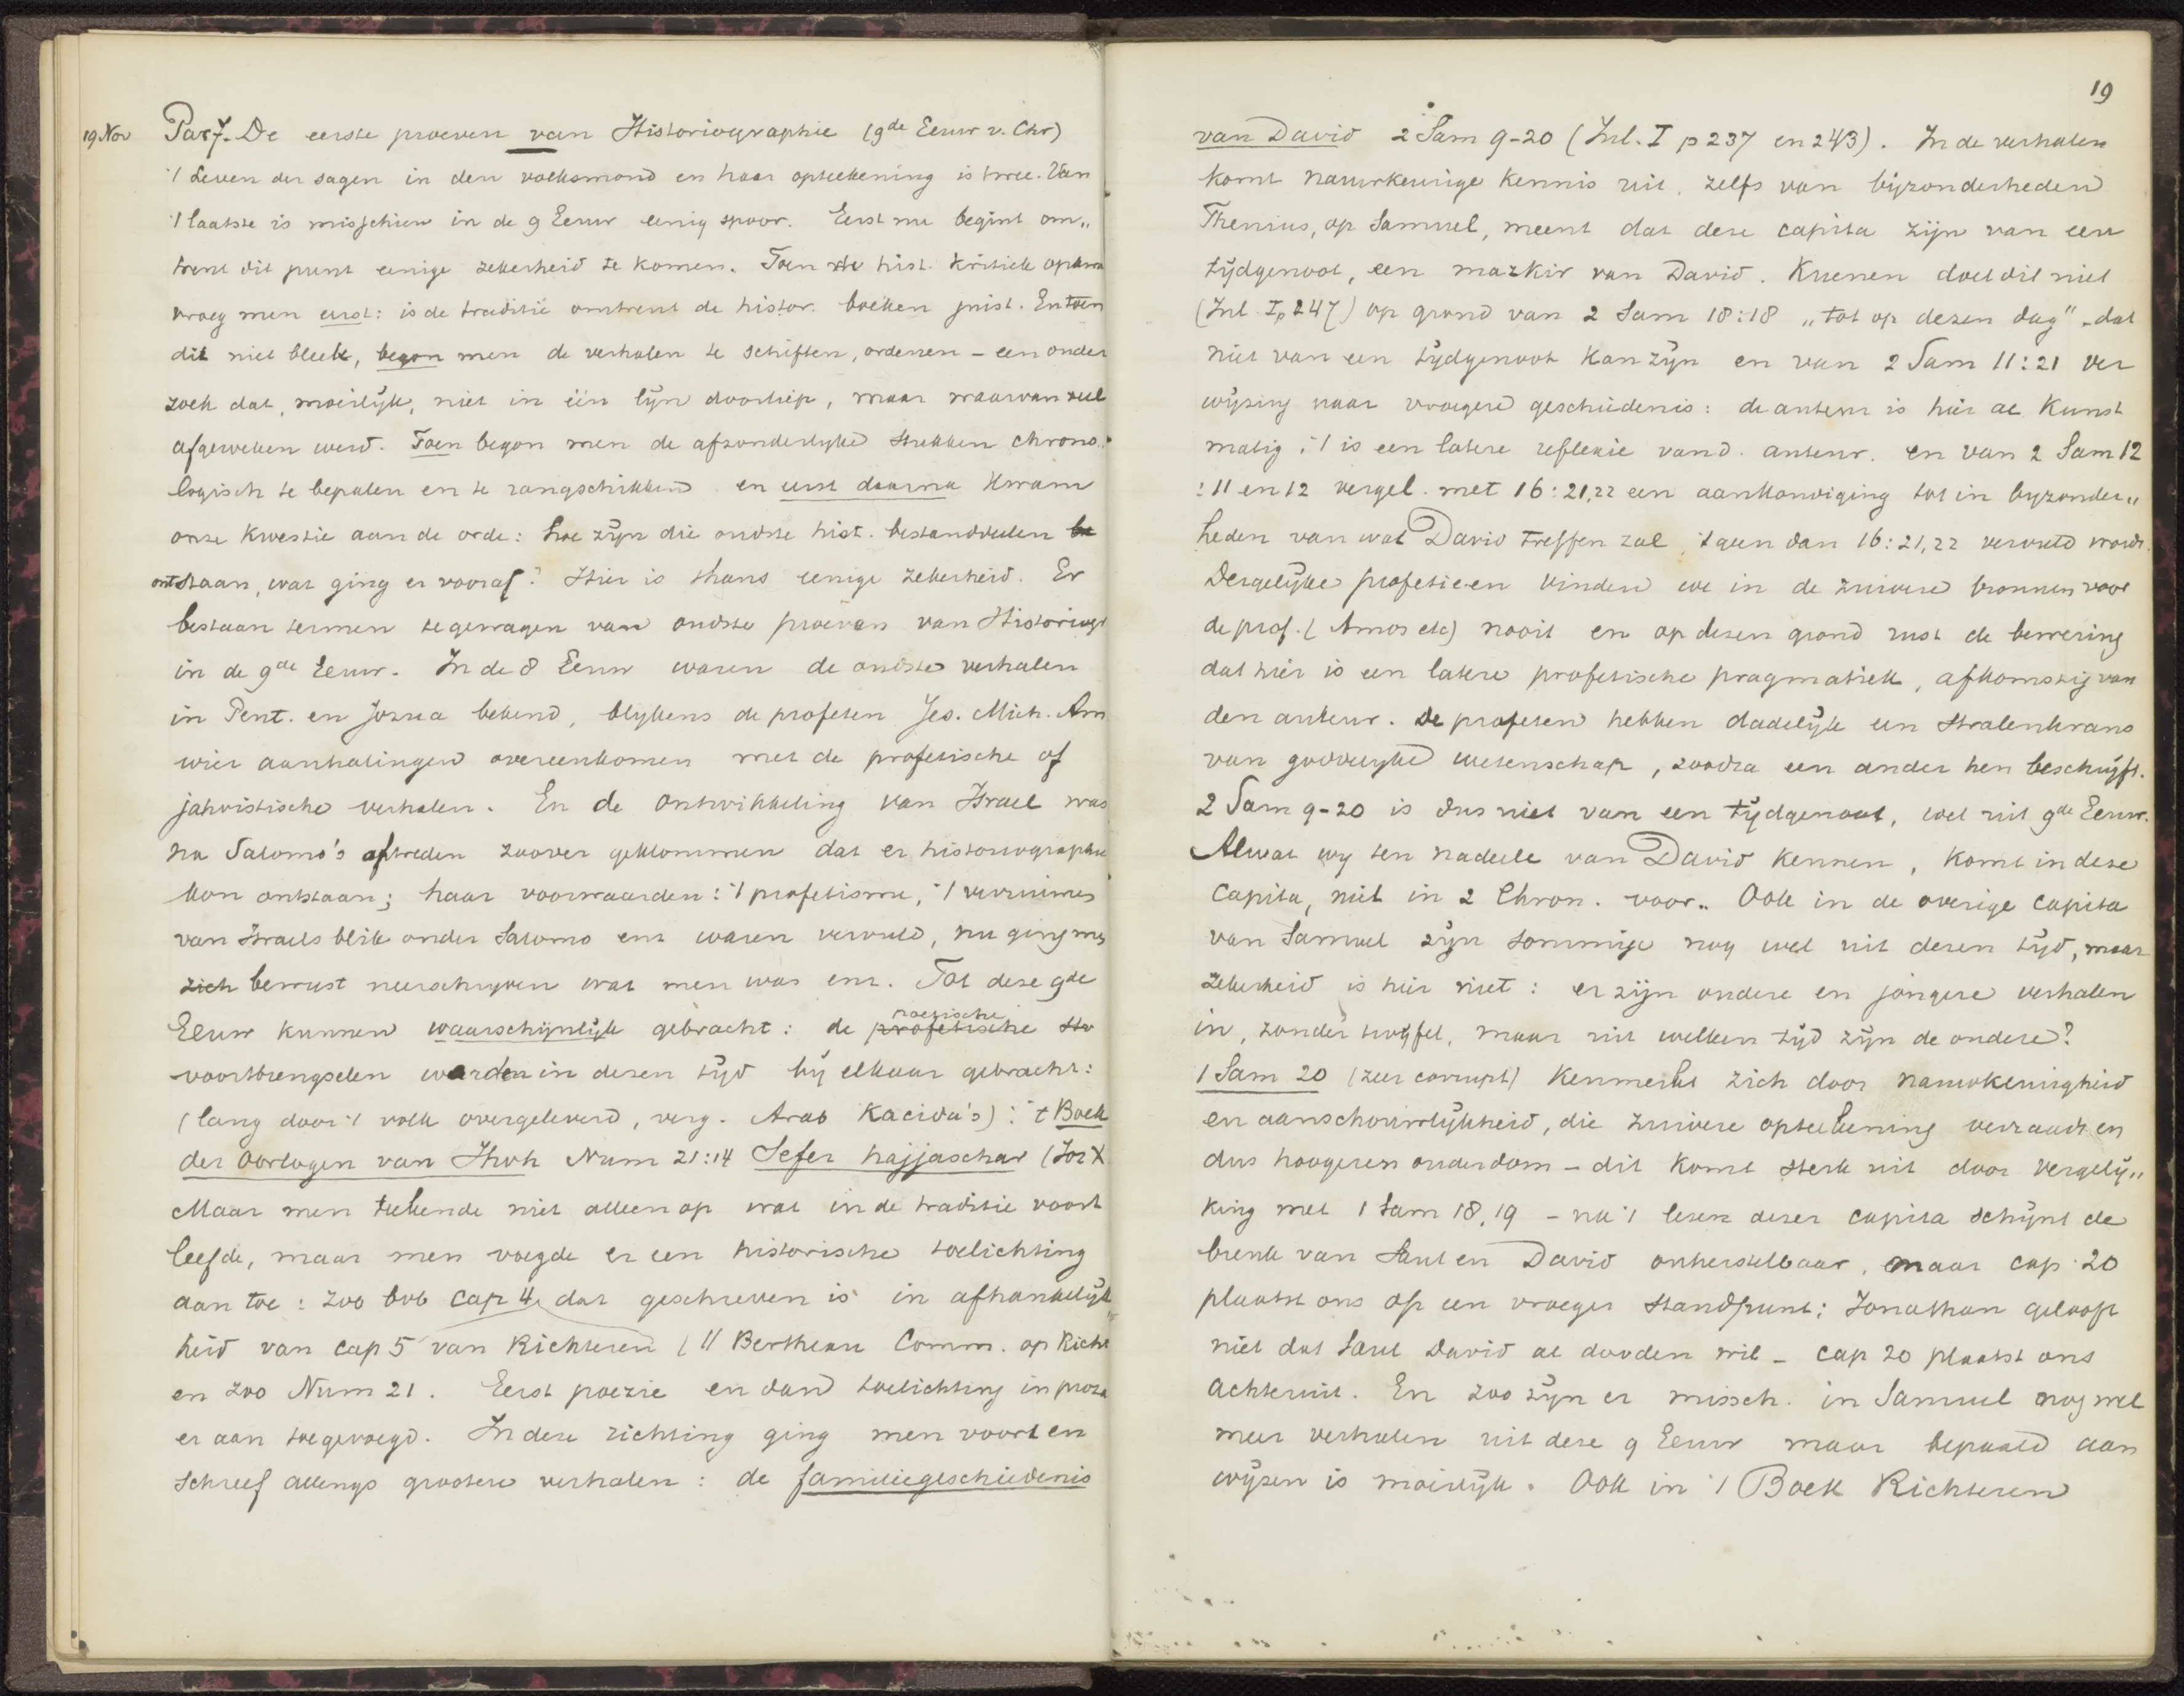 19 Nov Par 7. De eerste proeven van Historiographie (9de Eeuw v. Chr)
't Leven der sagen in den volksmond en haar opteekening is twee. Van
't laatste is misschien in de 9 Eeuw eenig spoor. Eerst nu begint om„
trent dit punt eenige zekerheid te komen. Toen de hist. kritiek opkwam
vroeg men eerst: is de traditie omtrent de histor. boeken juist. En toen
dit niet bleek, begon men de verhalen te schiften, ordenen - een onder
zoek dat, moeilijk, niet in één lijn doorliep, maar waarvan veel
afgeweken werd. Toen begon men de afzonderlyke stukken chrono„
logisch te bepalen en te rangschikken en eerst daarna kwam
onze kwestie aan de orde: hoe zijn die oudste hist. bestanddeelen be
ontstaan, wat ging er vooraf? Hier is thans eenige zekerheid. Er
bestaan termen te gewagen van oudste proeven van Historiogr
in de 9de Eeuw. In de 8 Eeuw waren de oudste verhalen
in Pent. en Jozua bekend, blykens de profeten Jes. Mich. Am
wier aanhalingen overeenkomen met de profetische of
jahvistische verhalen. En de ontwikkeling van Israel was
na Salomo's aftreden zoover geklommen dat er historiographie
kon ontstaan; haar voorwaarden: 't profetisme, 't verruimen
van Israels blik onder Salomo enz waren vervuld, nu ging men
zich bewust neerschrijven wat men was enz. Tot deze 9de
Eeuw kunnen waarschijnlijk gebracht: de profetische stu
poezische
voortbrengselen werden in dezen tijd bij elkaar gebracht:
(lang door 't volk overgeleverd, verg. Arab Kacida's): 't Boek
der Oorlogen van Jhvh Num 21:14 Sefer hajjaschar (Joz X
Maar men teekende niet alleen op wat in de traditie voort
leefde, maar men voegde er een historische toelichting
aan toe: zoo bvb cap 4 dat geschreven is in afhankelijk„
heid van cap 5 van Richteren ( || Bertheau Comm. op Richt
en zoo Num 21. Eerst poezie en dan toelichting in proza
er aan toegevoegd. In deze richting ging men voort en
schreef allengs grootere verhalen: de familiegeschiedenis
19
van David 2 Sam 9-20 (Inl. I p 237 en 243). In de verhalen
komt nauwkeurige kennis uit, zelfs van bijzonderheden
Thenius, op Samuel, meent dat deze capita zijn van een
tijdgenoot, een mazkir van David. Kuenen doet dit niet
(Inl. I, p 247) op grond van 2 Sam 18:18 „tot op dezen dag" - dat
niet van een tijdgenoot kan zijn en van 2 Sam 11:21 ver
wijzing naar vroegere geschiedenis: de auteur is hier al kunst
matig; 't is een latere reflexie van d. auteur. en van 2 Sam 12
:11 en 12 vergel. met 16:21,22 een aankondiging tot in byzonder„
heden van wat David treffen zal, 't geen dan 16:21,22 vervuld wordt.
Dergelijke profetieën vinden we in de zuivere bronnen voor
de prof. (Amos etc) nooit en op dezen grond rust de bewering
dat hier is een latere profetische pragmatiek, afkomstig van
den auteur. De profeten hebben dadelijk een stralenkrans
van goddelyke wetenschap, zoodra een ander hen beschrijft.
2 Sam 9-20 is dus niet van een tijdgenoot, wel uit 9de Eeuw.
Alwat wy ten nadeele van David kennen, komt in deze
capita, niet in 2 Chron. voor. Ook in de overige capita
van Samuel zijn sommige nog wel uit dezen tijd, maar
zekerheid is hier niet: er zijn oudere en jongere verhalen
in, zonder twijfel, maar uit welken tijd zijn de oudere?
1 Sam 20 (zeer corrupt) kenmerkt zich door nauwkeurigheid
en aanschouwlijkheid, die zuivere opteekening verraadt en
dus hoogeren ouderdom - dit komt sterk uit door vergelij„
king met 1 Sam 18, 19 - na 't lezen dezer capita schijnt de
breuk van Saul en David onherstelbaar, maar cap. 20
plaatst ons op een vroeger standpunt: Jonathan gelooft
niet dat Saul David al dooden wil - cap 20 plaatst ons
achteruit. En zoo zijn er missch. in Samuel nog wel
meer verhalen uit deze 9 Eeuw maar bepaald aan
wijzen is moeilijk. Ook in 't Boek Richteren